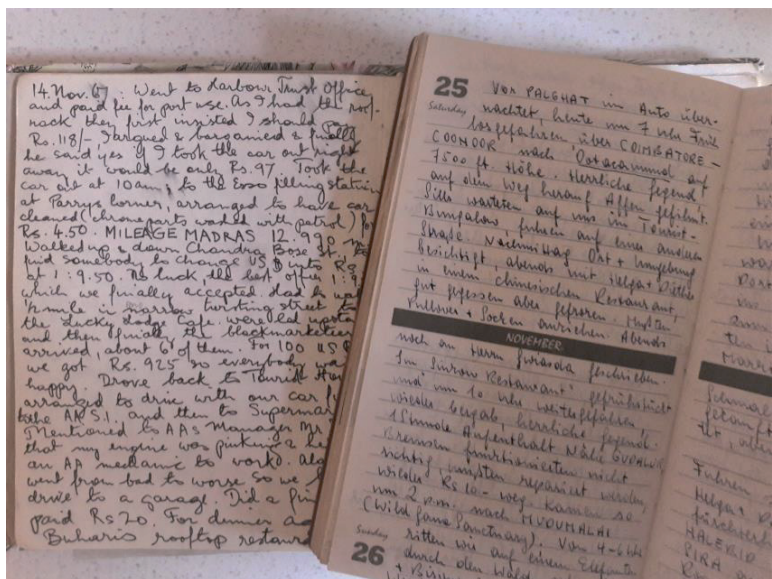 14. Nov. 67. Went to Harbour Trust Office
and paid fee for port use. As I had the roof-
rack they first insisted I should pay
Rs. 118/- I argued & bargained & finally
he said yes if I took the car out right
away it would be only Rs. 97. Took the
car out at 10am, to the Esso filling station
at Parrys Corner, arranged to have car
cleaned (chrome parts washed with patrol) for
Rs. 4.50. MILEAGE MADRAS 12.990 m
Walked up & down Chandra Bose St. to
find somebody to change US $ into Rs
at 1:9.50. No luck, the best offer 1:9.
which we finally accepted. Had to wa
½ mile in narrow street to
the Lucky Lodge Cafe were led upsta
and then finally the blackmarketeer
arrived, about 6 of them. For 100 US $
we got Rs. 925 so everybody wa
happy. Drove back to Tourist Ho
arranged to drive with our car f
to the AASI. and then to Supermar
Mentioned to AAs Manager Mr.
that my engine was pinking a
an AA mechanic to work. Al
went from bad to worse so we
drive to a garage. Did a
paid Rs 20. For dinner
Buharis rooftop restaura
25 Von PALGHAT im Auto über-
Saturday nachtet, heute um 7 Uhr Früh
losgefahren über COIMBATORE –
COONOOR nach Ootacamund auf
7500 ft. Höhe. Herrliche Gegend,
auf dem Weg herauf Affen gefilmt.
warteten auf uns im Tourist-
Bungalow, fuhren auf einer anderen
Straße. Nachmittag Ort + Umgebung
besichtigt, abends mit Helga +
in einem chinesischen Restaurant,
gut gegessen aber gefroren. Mußten
Pullover + Socken anziehen. Abends
NOVEMBER
noch an Herrn geschrieben.
Im Restaurant gefrühstückt
und um 10 Uhr weitergefahren,
wieder bergab, herrliche Gegend.
1 Stunde Aufenthalt Nähe GUDALUR
Bremsen funktionierten nicht
richtig, mußten repariert werden,
wieder Rs 10 – weg. Kamen so
um 2 p.m. nach MUDUMALAI
(Wild Game Sanctuary). Von 4–6 Uhr
Sunday ritten wir auf einem Elefanten
26 durch den Wald
Fuhren
Helga +
HALEBID